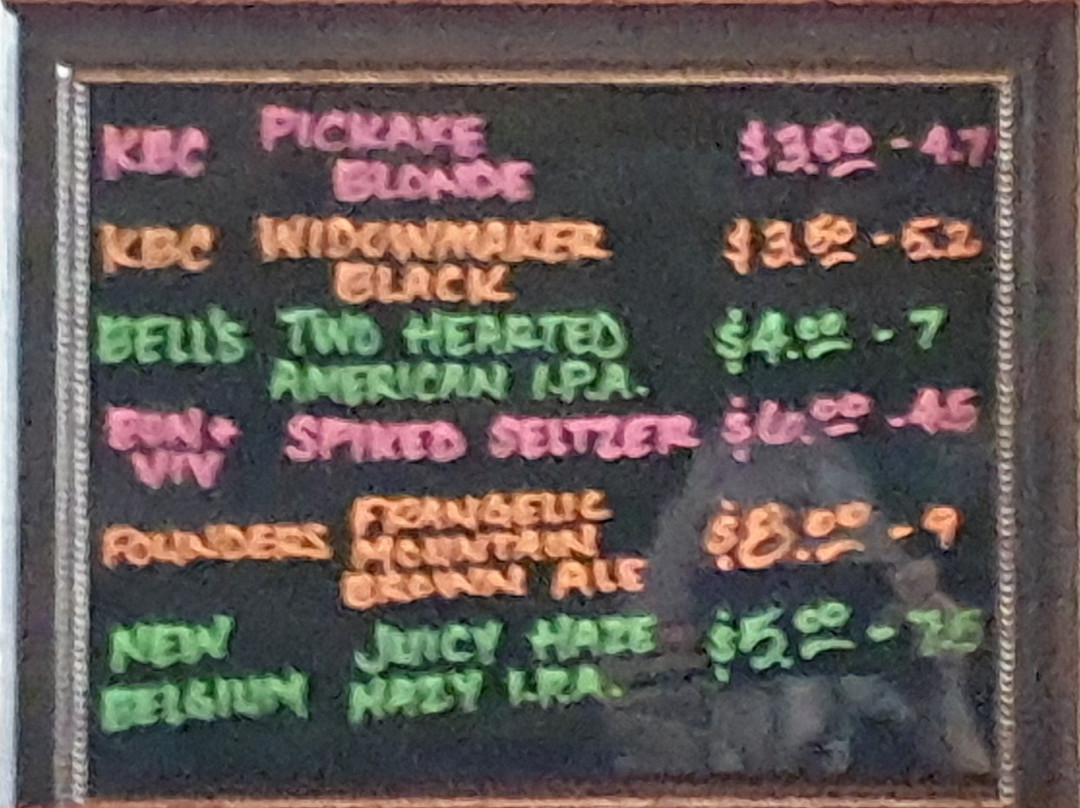 KBC PICKAXE BLONDE $3.50 - 4.7
KBC WIDOWMAKER BLACK $3.50 - 5.2
BELL'S TWO HEARTED AMERICAN I.P.A. $4.00 - 7
BON + VIV SPIKED SELTZER $6.00 - 4.5
FOUNDERS FRANGELIC MOUNTAIN BROWN ALE $8.00 - 9
NEW BELGIUM JUICY HAZE HAZY I.P.A. $5.00 - 7.5